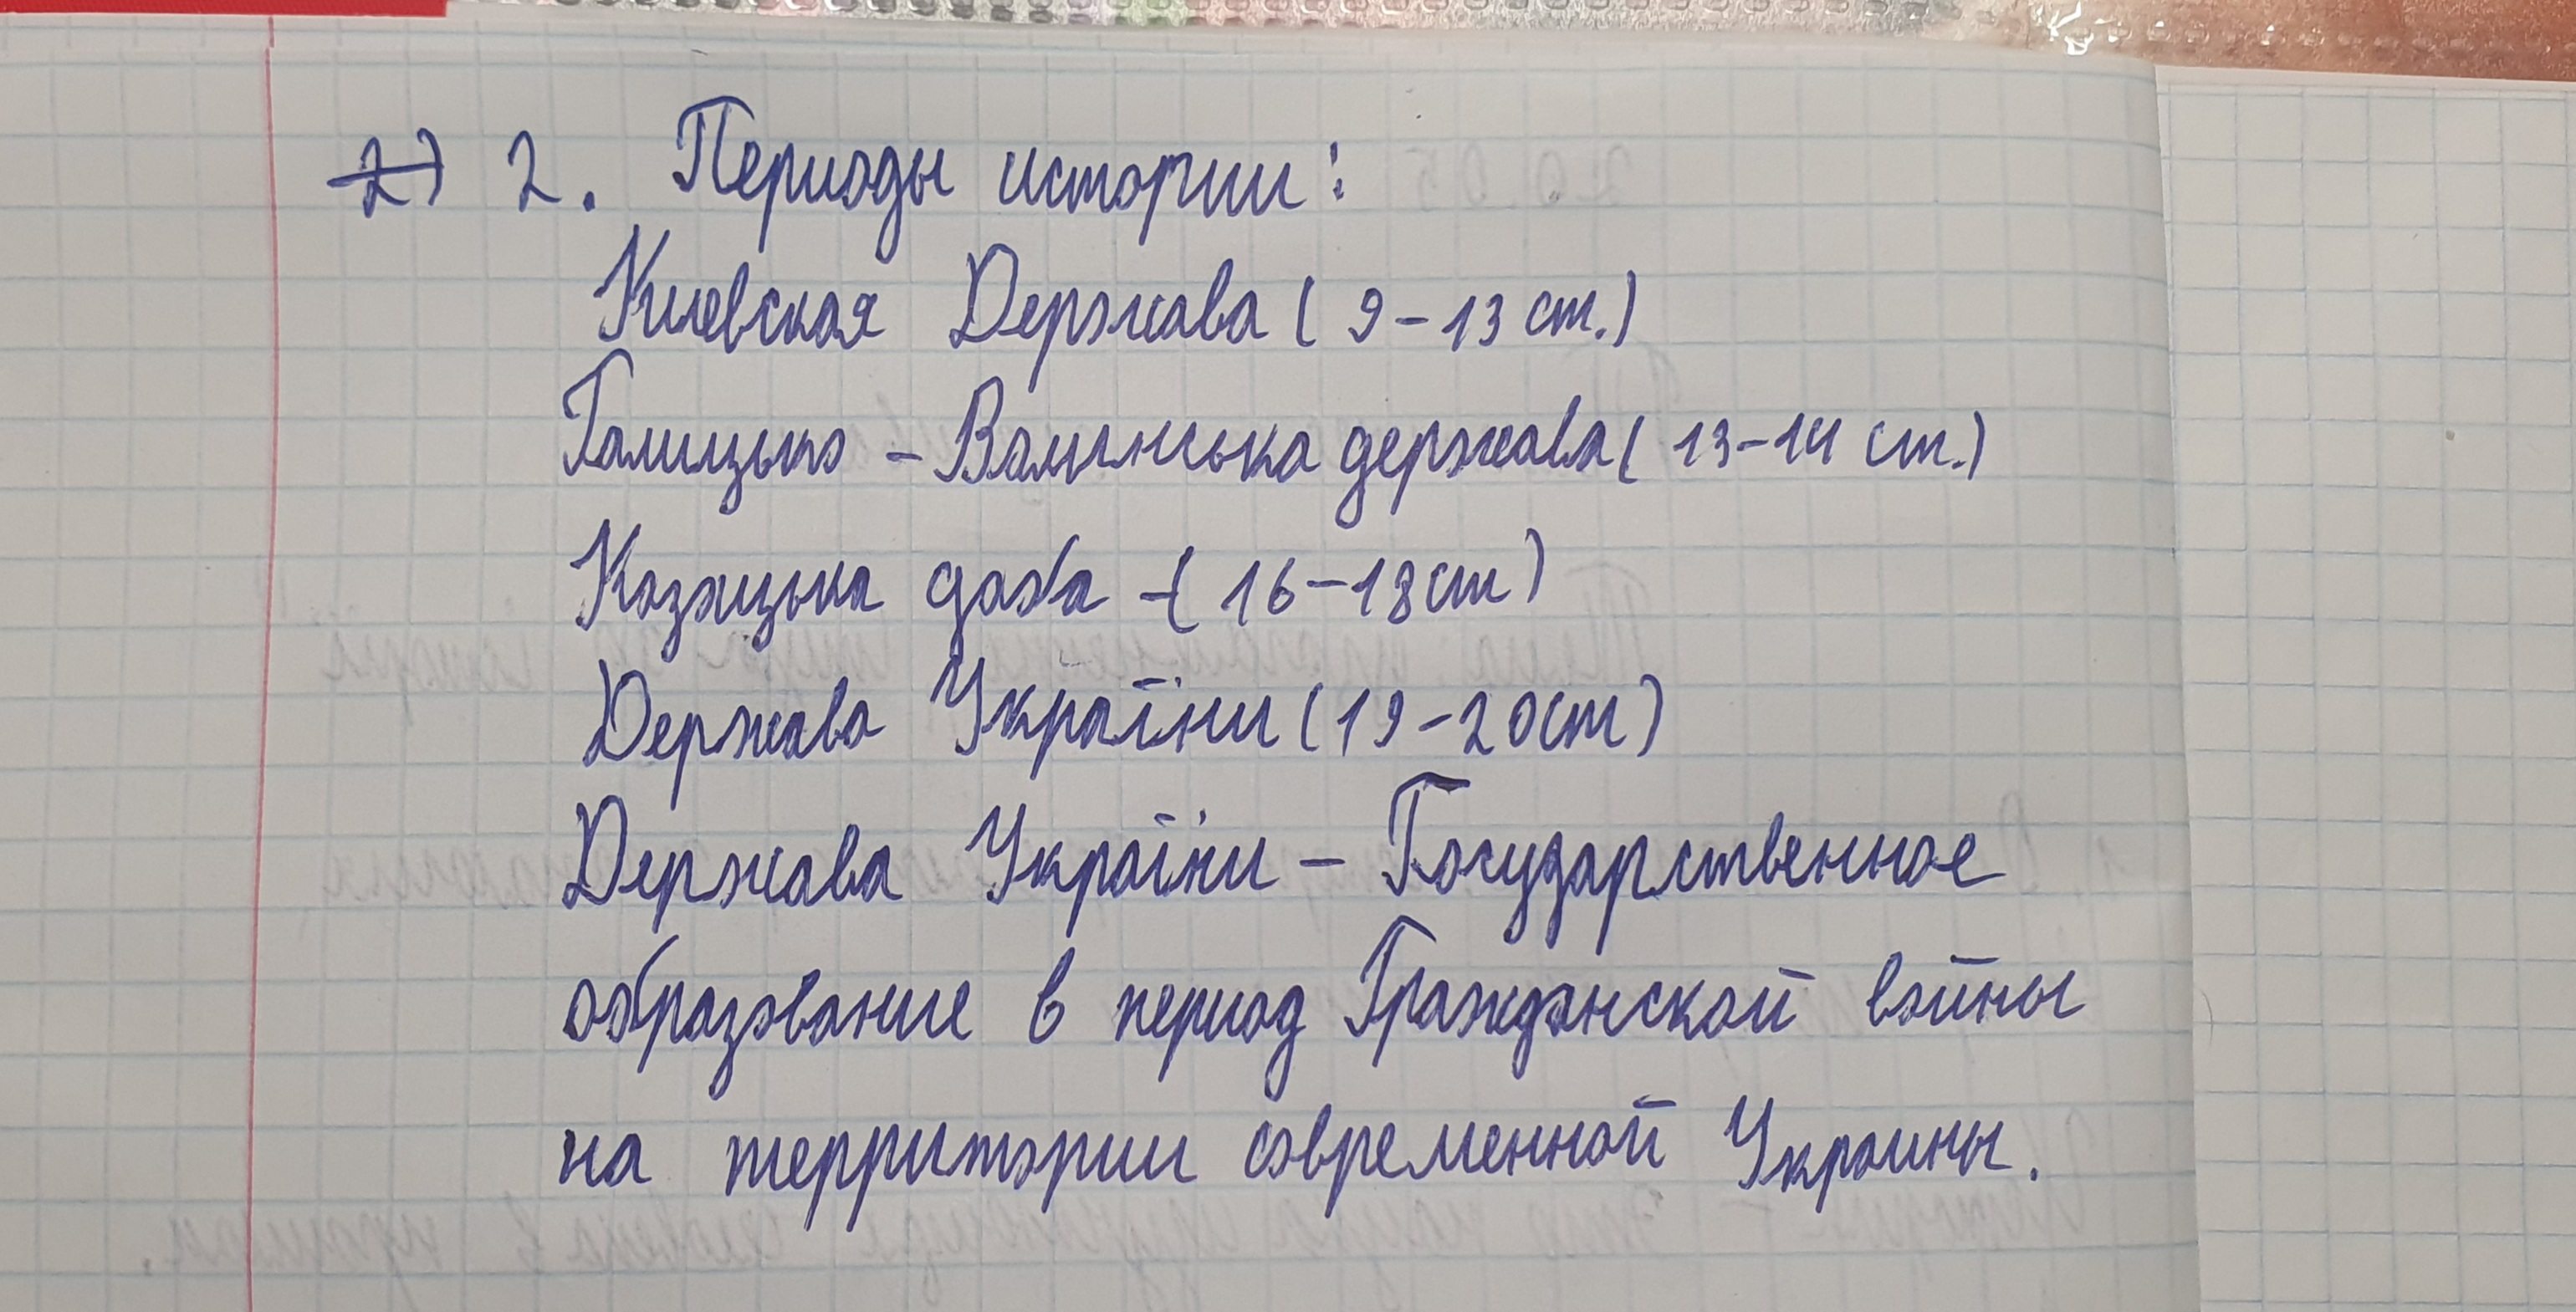 2) 2. Периоды истории:
Киевская Держава (9-13 ст.)
Галицько - Волинська держава (13-14 ст.)
Козацька доба - (16-18 ст)
Держава України (19-20 ст)
Держава Україны - Государственное
образование в период Гражданской войны
на территории современной Украины.